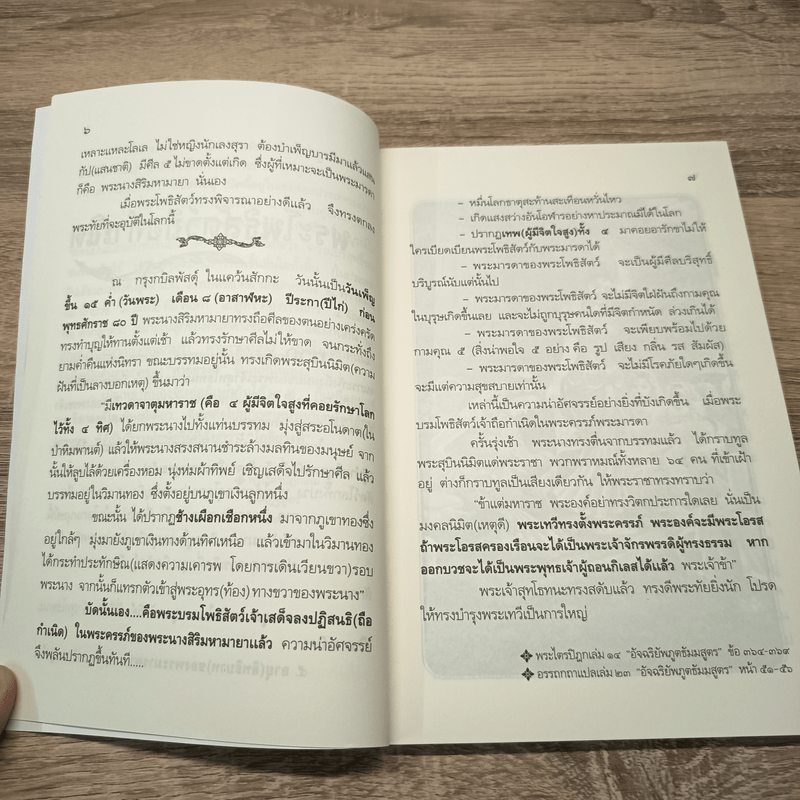 ๖
เหลาะแหละโลเล ไม่ใช่หญิงนักเลงสุรา ต้องบำเพ็ญบารมีมาแล้วแสน
กัป(แสนชาติ) มีศีล ๕ ไม่ขาดตั้งแต่เกิด ซึ่งผู้ที่เหมาะจะเป็นพระมารดา
ก็คือ พระนางสิริมหามายา นั่นเอง
เมื่อพระโพธิสัตว์ทรงพิจารณาอย่างดีแล้ว จึงทรงตกลง
พระทัยที่จะอุบัติในโลกนี้
ณ กรุงกบิลพัสดุ์ ในแคว้นสักกะ วันนั้นเป็นวันเพ็ญ
ขึ้น ๑๕ ค่ำ (วันพระ) เดือน ๘ (อาสาฬหะ) ปีระกา(ปีไก่) ก่อน
พุทธศักราช ๘๐ ปี พระนางสิริมหามายาทรงถือศีลของตนอย่างเคร่งครัด
ทรงทำบุญให้ทานตั้งแต่เช้า แล้วทรงรักษาศีลไม่ให้ขาด จนกระทั่งถึง
ยามค่ำคืนแห่งนิทรา ขณะบรรทมอยู่นั้น ทรงเกิดพระสุบินนิมิต(ความ
ฝันที่เป็นลางบอกเหตุ) ขึ้นมาว่า
"มีเทวดาจาตุมหาราช (คือ ๔ ผู้มีจิตใจสูงที่คอยรักษาโลก
ไว้ทั้ง ๔ ทิศ) ได้ยกพระนางไปทั้งแท่นบรรทม มุ่งสู่สระอโนดาต(ใน
ป่าหิมพานต์) แล้วให้พระนางสรงสนานชำระล้างมลทินของมนุษย์ จาก
นั้นให้ลูบไล้ด้วยเครื่องหอม นุ่งห่มผ้าทิพย์ เชิญเสด็จไปรักษาศีล แล้ว
บรรทมอยู่ในวิมานทอง ซึ่งตั้งอยู่บนภูเขาเงินลูกหนึ่ง
ขณะนั้น ได้ปรากฏช้างเผือกเชือกหนึ่ง มาจากภูเขาทองซึ่ง
อยู่ใกล้ๆ มุ่งมายังภูเขาเงินทางด้านทิศเหนือ แล้วเข้ามาในวิมานทอง
ได้กระทำประทักษิณ(แสดงความเคารพ โดยการเดินเวียนขวา)รอบ
พระนาง จากนั้นก็แทรกตัวเข้าสู่พระอุทร(ท้อง)ทางขวาของพระนาง"
บัดนั้นเอง....คือพระบรมโพธิสัตว์เจ้าเสด็จลงปฏิสนธิ(ถือ
กำเนิด) ในพระครรภ์ของพระนางสิริมหามายาแล้ว ความน่าอัศจรรย์
จึงพลันปรากฏขึ้นทันที.....
๗
- หมื่นโลกธาตุสะท้านสะเทือนหวั่นไหว
- เกิดแสงสว่างอันโอฬารอย่างหาประมาณมิได้ในโลก
- ปรากฏเทพ(ผู้มีจิตใจสูง)ทั้ง ๔ มาคอยอารักขาไม่ให้
ใครเบียดเบียนพระโพธิสัตว์กับพระมารดาได้
- พระมารดาของพระโพธิสัตว์ จะเป็นผู้มีศีลบริสุทธิ์
บริบูรณ์นับแต่นั้นไป
- พระมารดาของพระโพธิสัตว์ จะไม่มีจิตใฝ่ฝันถึงกามคุณ
ในบุรุษเกิดขึ้นเลย และจะไม่ถูกบุรุษคนใดที่มีจิตกำหนัด ล่วงเกินได้
- พระมารดาของพระโพธิสัตว์ จะเพียบพร้อมไปด้วย
กามคุณ ๕ (สิ่งน่าพอใจ ๕ อย่าง คือ รูป เสียง กลิ่น รส สัมผัส)
- พระมารดาของพระโพธิสัตว์ จะไม่มีโรคภัยใดๆเกิดขึ้น
จะมีแต่ความสุขสบายเท่านั้น
เหล่านี้เป็นความน่าอัศจรรย์อย่างยิ่งที่บังเกิดขึ้น เมื่อพระ
บรมโพธิสัตว์เจ้าถือกำเนิดในพระครรภ์พระมารดา
ครั้นรุ่งเช้า พระนางทรงตื่นจากบรรทมแล้ว ได้กราบทูล
พระสุบินนิมิตแด่พระราชา พวกพราหมณ์ทั้งหลาย ๖๔ คน ที่เข้าเฝ้า
อยู่ ต่างก็กราบทูลเป็นเสียงเดียวกัน ให้พระราชาทรงทราบว่า
"ข้าแต่มหาราช พระองค์อย่าทรงวิตกประการใดเลย นั่นเป็น
มงคลนิมิต(เหตุดี) พระเทวีทรงตั้งพระครรภ์ พระองค์จะมีพระโอรส
ถ้าพระโอรสครองเรือนจะได้เป็นพระเจ้าจักรพรรดิผู้ทรงธรรม หาก
ออกบวชจะได้เป็นพระพุทธเจ้าผู้ถอนกิเลสได้แล้ว พระเจ้าข้า"
พระเจ้าสุทโธทนะทรงสดับแล้ว ทรงดีพระทัยยิ่งนัก โปรด
ให้ทรงบำรุงพระเทวีเป็นการใหญ่
พระไตรปิฎกเล่ม ๑๔ "อัจฉริยัพภูตธัมมสูตร" ข้อ ๓๖๔-๓๖๙
อรรถกถาแปลเล่ม ๒๓ "อัจฉริยัพภูตธัมมสูตร" หน้า ๕๑-๕๖